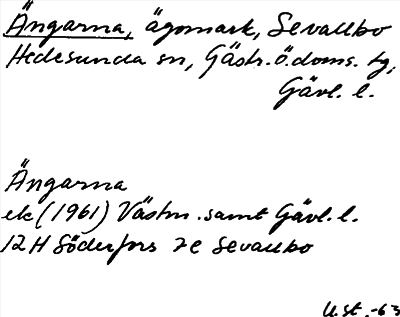 Ängarna, ägomark, Sevallbo
Hedesunda sn, Gästr. Ö. doms. tg,
Gävl. l.
Ängarna
ek (1961) Västm. samt Gävl. l.
12 H Söderfors 7e Sevallbo
U.St. -63